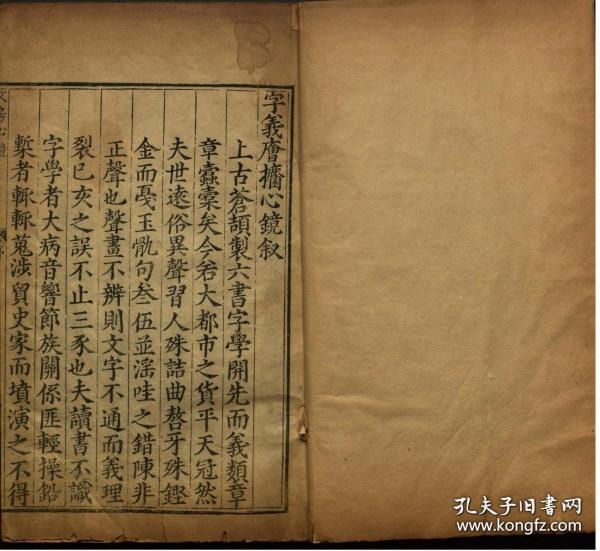 字義㕩攟心鏡叙
上古蒼頡製六書字學開先而義類章
章蠹橐矣今若大都市之貨平天冠然
夫世逺俗異聲習人殊詰曲謷牙殊鏗
金而戞玉骩句叁伍並滛哇之錯陳非
正聲也聲畫不辨則文字不通而義理
裂已亥之誤不止三豕也夫讀書不識
字學者大病音響節族關係匪輕操鉛
槧者輒輒蒐渉貿史家而墳演之不得
心鏡
序
孔夫子旧书网
www.kongfz.com